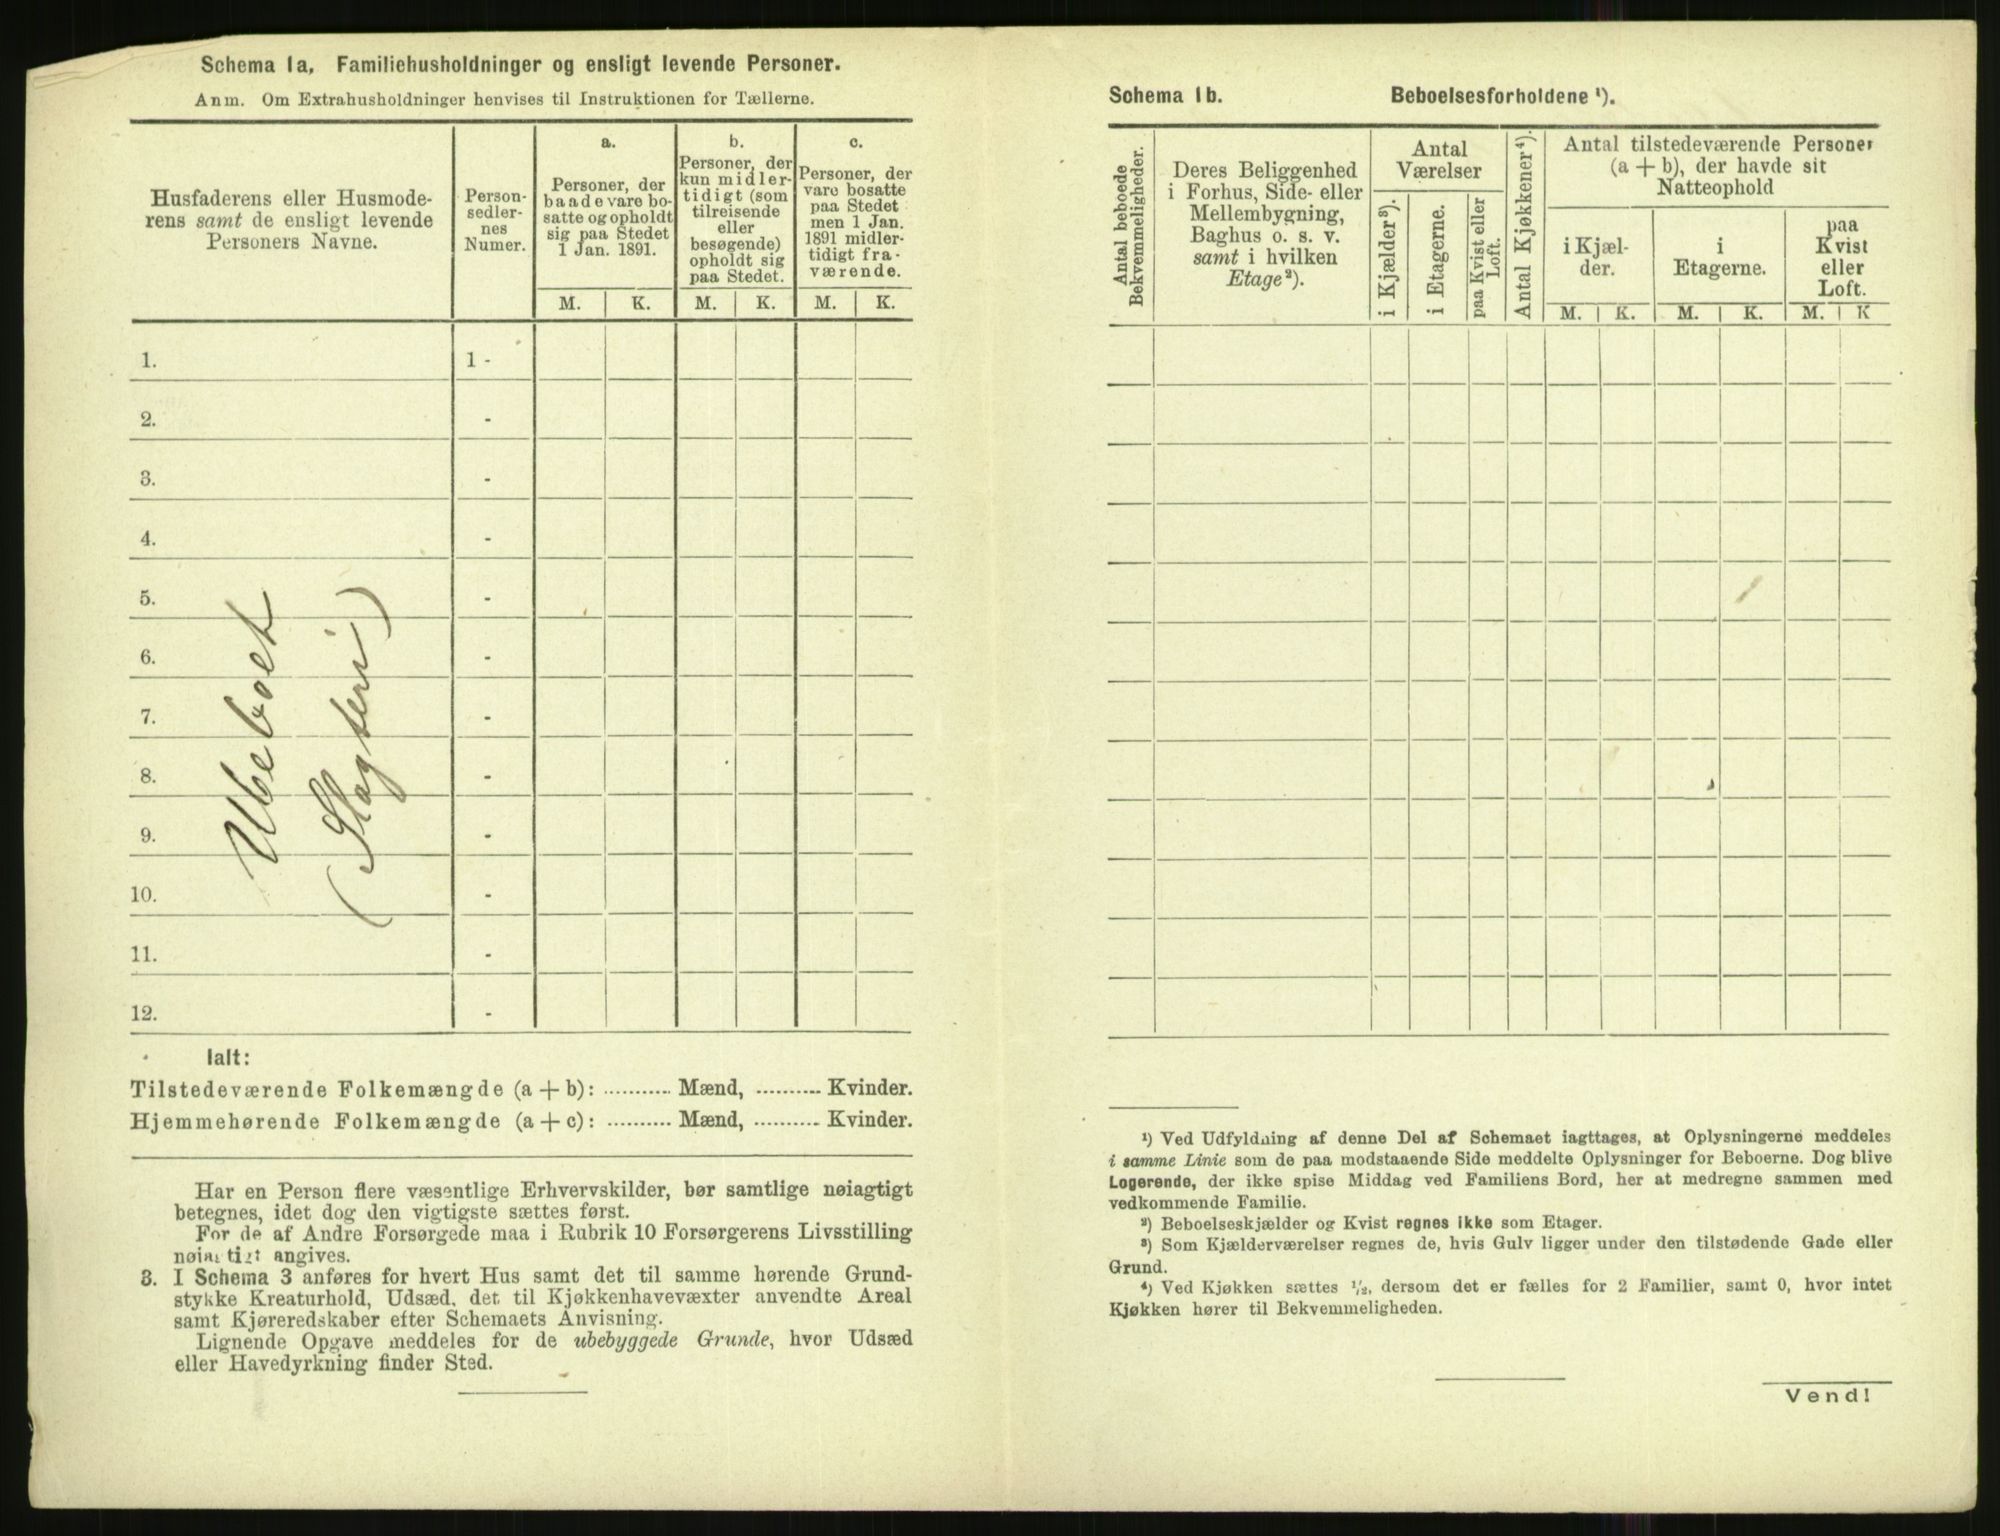 Schema 1a. Familiehusholdninger og ensligt levende Personer.
Anm. Om Extrahusholdninger henvises til Instruktionen for Tællerne.
Husfaderens eller Husmode-
rens samt de ensligt levende
Personers Navne.
Person-
sedler-
nes
Numer.
a.
Personer, der
baade vare bo-
satte og opholdt
sig paa Stedet
1 Jan. 1891.
b.
Personer, der
kun midler-
tidigt (som
tilreisende
eller
besøgende)
opholdt sig
paa Stedet.
c.
Personer, der
vare bosatte
paa Stedet
men 1 Jan.
1891 midler-
tidigt fra-
værende.
M. K. M. K. M. K.
1. 1 -
2. -
3. -
4. -
5. -
6. -
7. -
8. -
9. -
10. -
11. -
12. -
Ubeboet
(Slagteri)
Ialt:
Tilstedeværende Folkemængde (a + b): .......... Mænd, .......... Kvinder.
Hjemmehørende Folkemængde (a + c): .......... Mænd, .......... Kvinder.
Har en Person flere væsentlige Erhvervskilder, bør samtlige nøiagtigt
betegnes, idet dog den vigtigste sættes først.
For de af Andre Forsørgede maa i Rubrik 10 Forsørgerens Livsstilling
nøiagtigt angives.
3. I Schema 3 anføres for hvert Hus samt det til samme hørende Grund-
stykke Kreaturhold, Udsæd, det til Kjøkkenhavevæxter anvendte Areal
samt Kjøreredskaber efter Schemaets Anvisning.
Lignende Opgave meddeles for de ubebyggede Grunde, hvor Udsæd
eller Havedyrkning finder Sted.
Schema 1b. Beboelsesforholdene ¹).
Antal beboede
Bekvemmeligheder.
Deres Beliggenhed
i Forhus, Side- eller
Mellembygning,
Baghus o. s. v.
samt i hvilken
Etage²).
Antal
Værelser
i Kjælder³).
i Etagerne.
paa Kvist eller
Loft.
Antal Kjøkkener⁴).
Antal tilstedeværende Personer
(a + b), der havde sit
Natteophold
i Kjæl-
der.
i
Etagerne.
paa
Kvist
eller
Loft.
M. K. M. K. M. K
¹) Ved Udfyldning af denne Del af Schemaet iagttages, at Oplysningerne meddeles
i samme Linie som de paa modstaaende Side meddelte Oplysninger for Beboerne. Dog blive
Logerende, der ikke spise Middag ved Familiens Bord, her at medregne sammen med
vedkommende Familie.
²) Beboelseskjælder og Kvist regnes ikke som Etager.
³) Som Kjælderværelser regnes de, hvis Gulv ligger under den tilstødende Gade eller
Grund.
⁴) Ved Kjøkken sættes ¹/₂, dersom det er fælles for 2 Familier, samt 0, hvor intet
Kjøkken hører til Bekvemmeligheden.
Vend!